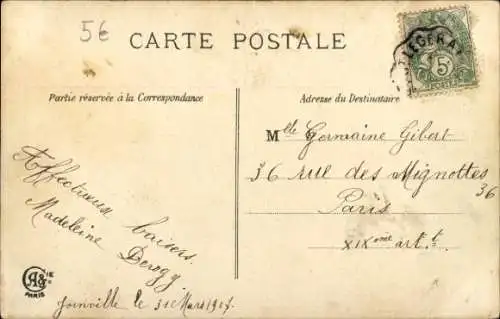 5€
CARTE POSTALE
5
Partie réservée à la Correspondance
Adresse du Destinataire
Mlle Germaine Gibert
36 rue des Mignottes
36
Paris
XIXème arr.t
Affectueux baisers.
Madeleine
Joinville le 31 Mars 1907
PARIS